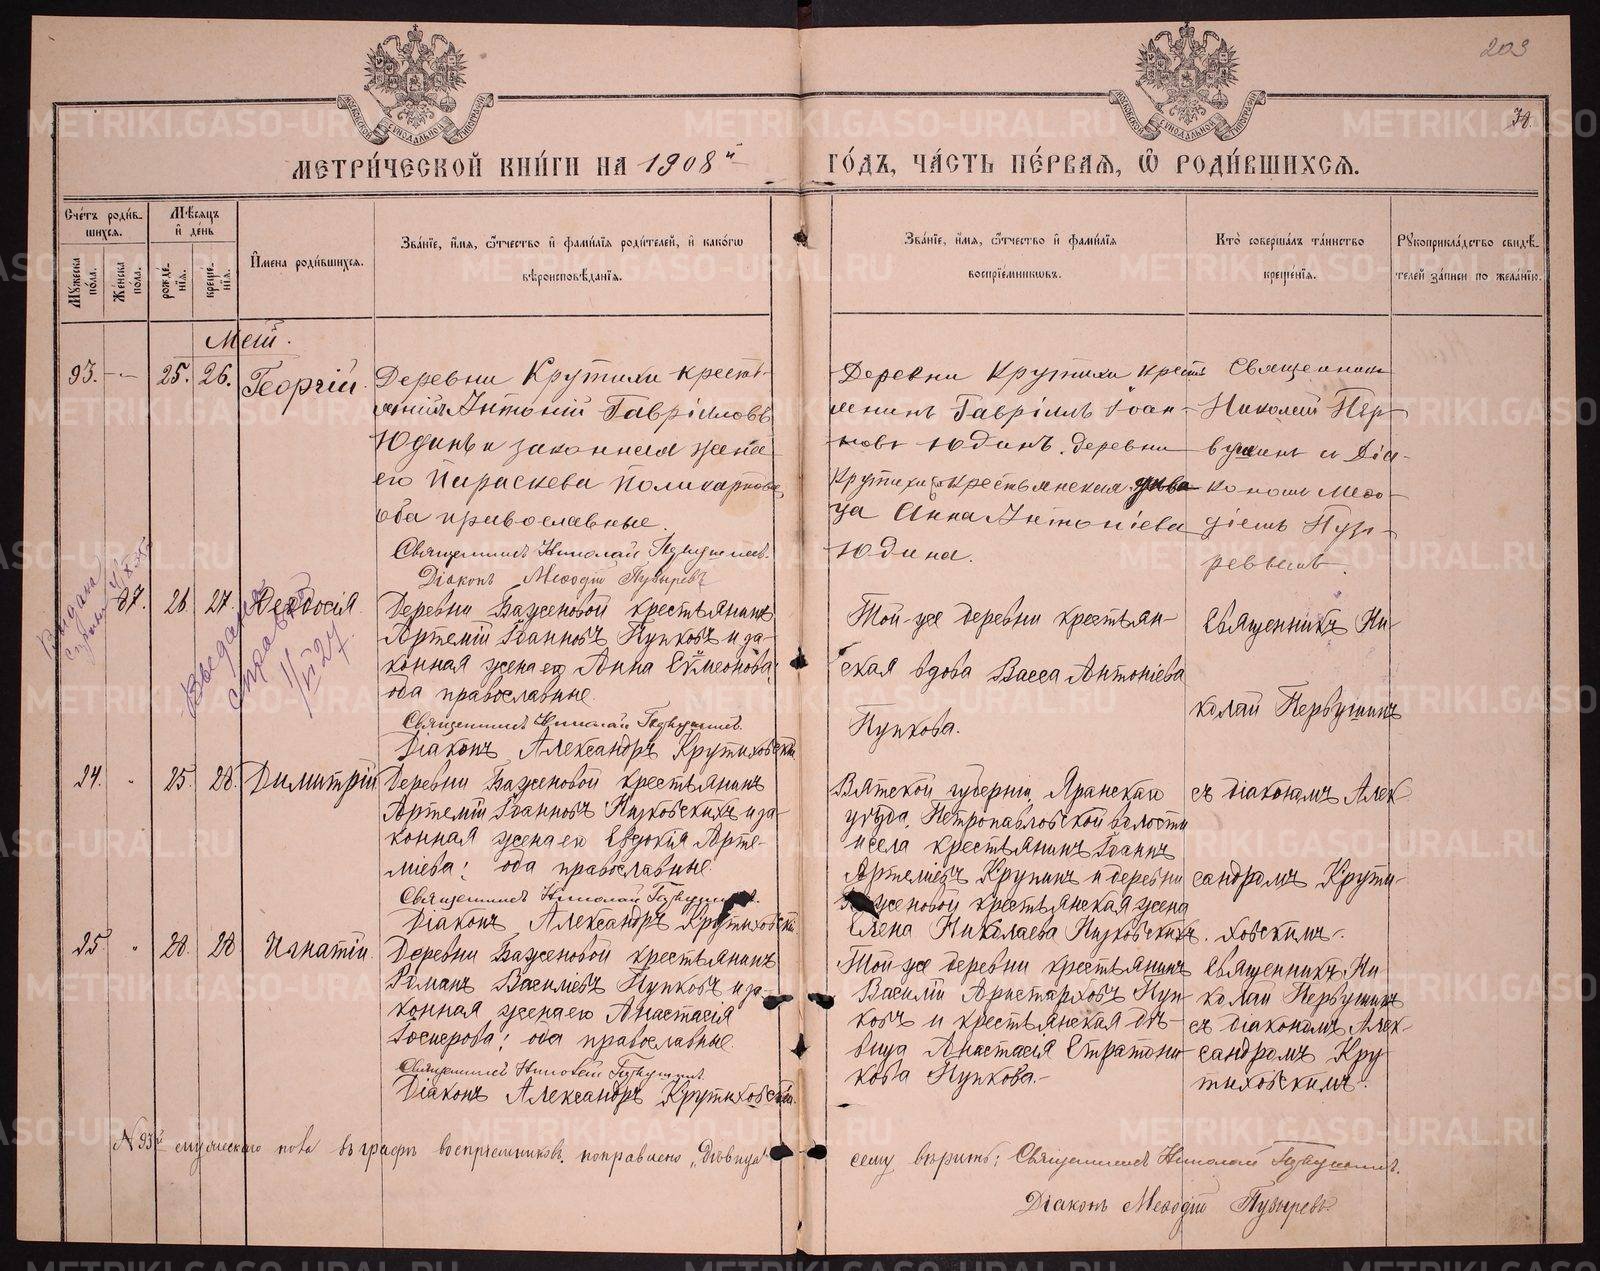 203
38.
МЕТРИ́ЧЕСКОЙ КНИ́ГИ НА 1908й ГО́ДЪ, ЧА́СТЬ ПЕ́РВАЯ, Ѡ РОДИ́ВШИХСЯ.
Сче́тъ роди́вшихся.
Му́жеска по́ла.
Же́нска по́ла.
Мѣ́сяцъ и де́нь
рожде́нїя.
креще́нїя.
И́мена роди́вшихся.
Зва́нїе, и́мя, ѻ́тчество и фами́лїя роди́телей, и како́гѡ
вѣроисповѣ́данїя.
Зва́нїе, и́мя, ѻ́тчество и фами́лїя
воспрїе́мниковъ.
Кто̀ соверша́лъ та́инство
креще́нїя.
Рꙋкоприкла́дство свидѣ́-
телей за́писи по жела́нїю.
Май.
93. - 25. 26. Георгій.
Деревни Крутихи кресть-
янинъ Антоній Гавріиловъ
Юдинъ и законная жена
его Параскева Поликарпова,
оба православные.
Священникъ Николай Первушинъ.
Діаконъ Меѳодій Пузыревъ
Деревни Крутихи крест
янинъ Гавріилъ Іоан-
новъ Юдинъ. деревни
Крутихи крестьянская
ца Анна Антоніева
Юдина.
Священникъ
Николай Пер-
вушинъ и Діа-
кономъ Меѳо-
діемъ Пузы-
ревымъ.
87. 26. 27. Ѳеодосія.
Выдана
справка
27
Деревни Баженовой крестьянинъ
Артемій Іоанновъ Пупковъ и за-
конная жена его Анна Сѵмеонова;
оба православные.
Священникъ Николай Первушинъ.
Діаконъ Александръ Крутиховскій
Той-же деревни крестьян-
ская вдова Васса Антоніева
Пупкова.
Священникъ Ни-
колай Первушинъ
24. " 25. 28. Димитрій
Деревни Баженовой крестьянинъ
Артемій Іоанновъ Низковскихъ и за-
конная жена его Евдокія Арте-
міева; оба православные.
Священникъ Николай Первушинъ.
Діаконъ Александръ Крутиховскій
Вятской губерніи, Яранскаго
уѣзда, Петропавловской волости
и села крестьянинъ Іоаннъ
Артеміевъ Крупинъ и деревни
Баженовой крестьянская жена
Елена Николаева Низковскихъ.
съ діакономъ Алек-
сандромъ Крути-
ховскимъ.
25 " 28. 28 Игнатій.
Деревни Баженовой крестьянинъ
Романъ Василіевъ Пупковъ и за-
конная жена его Анастасія
оба православные.
Священникъ Николай Первушинъ.
Діаконъ Александръ Крутиховскій.
Той-же деревни крестьянинъ
Василій Аристарховъ Пуп-
ковъ и крестьянская дѣ-
вица Анастасія Стратони-
кова Пупкова.-
Священникъ Ни-
колай Первушинъ
съ діакономъ Алек-
сандромъ Кру
тиховскимъ.
№ 93й мужескаго пола въ графѣ воспріемниковъ. поправлено „дѣвица"
сему вѣрить; Священникъ Николай Первушинъ.
Діаконъ Меѳодій Пузыревъ
METRIKI.GASO-URAL.RU